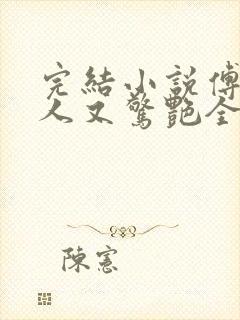 完結小說傅
人又驚艷全
陳憲